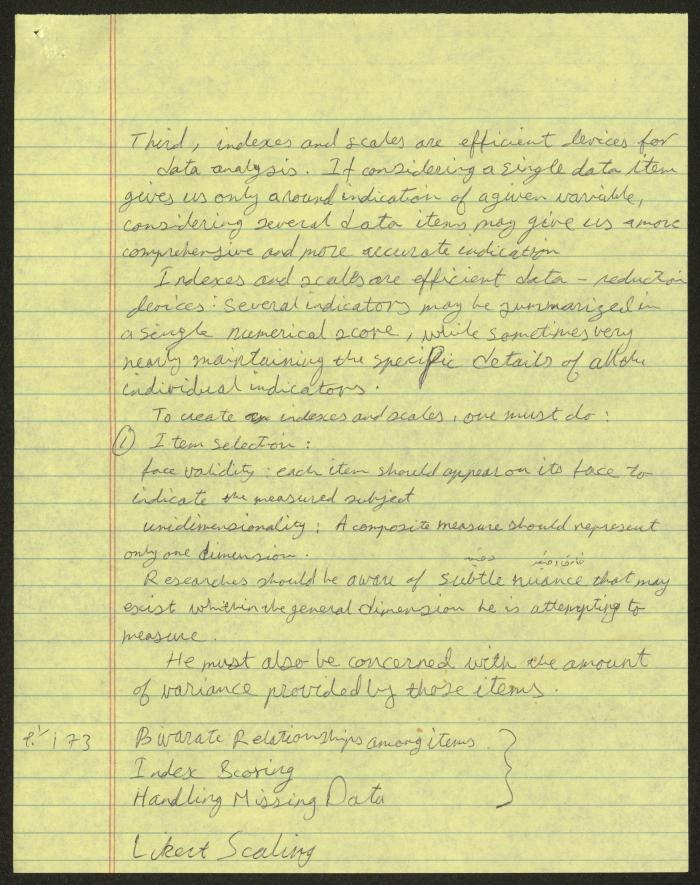 Third, indexes and scales are efficient devices for
data analysis. If considering a single data item
gives us only around indication of a given variable,
considering several data items may give us a more
comprehensive and more accurate indication
Indexes and scales are efficient data - reduction
devices: Several indicators may be summarized in
a single numerical score, while sometimes very
nearly maintaining the specific details of all the
individual indicators.
To create indexes and scales, one must do:
① Item selection:
face validity: each item should appear on its face to
indicate the measured subject
unidimensionality: A composite measure should represent
only one dimension.
Researches should be aware of subtle nuance that may
exist whithin the general dimension he is attempting to
measure.
He must also be concerned with the amount
of variance provided by those items.
173 Bivarate Relationships among items
Index Scoring
Handling Missing Data
Likert Scaling